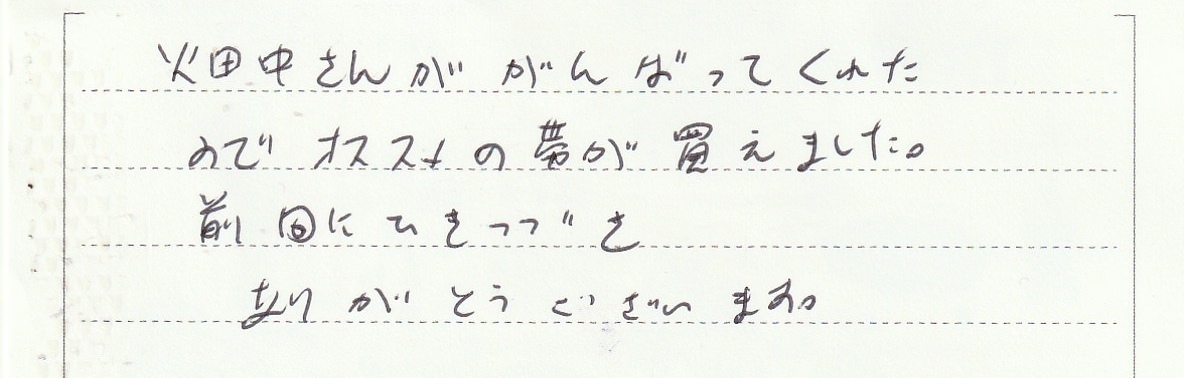 畑中さんが がんばってくれた
のでオススメの が買えました。
前回にひきつづき
ありがとうございます。